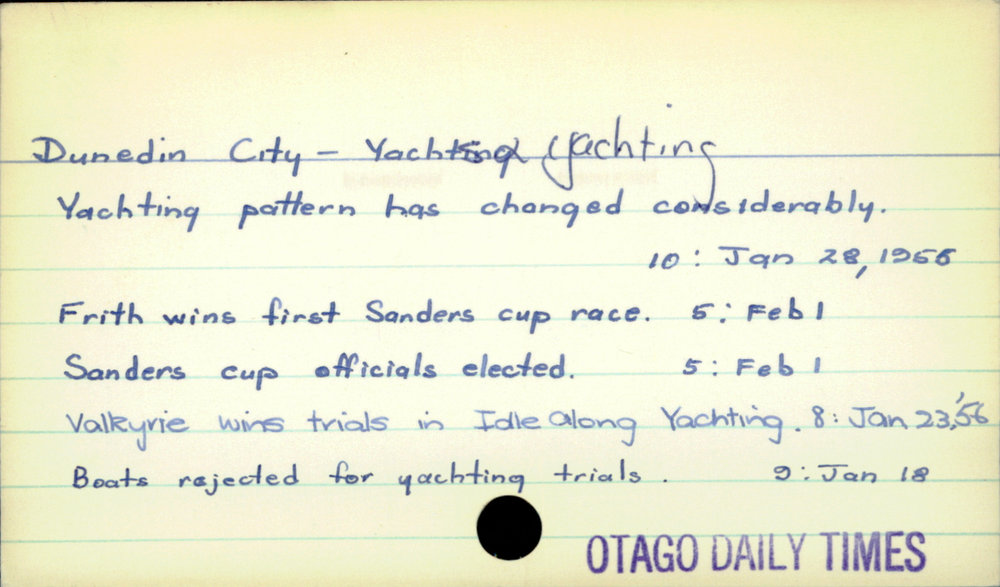 Dunedin City - Yachting Yachting
Yachting pattern has changed considerably.
10 : Jan 28, 1956
Frith wins first Sanders cup race. 5 : Feb 1
Sanders cup officials elected. 5 : Feb 1
Valkyrie wins trials in Idle Along Yachting. 8 : Jan 23, '56
Boats rejected for yachting trials. 9 : Jan 18
OTAGO DAILY TIMES